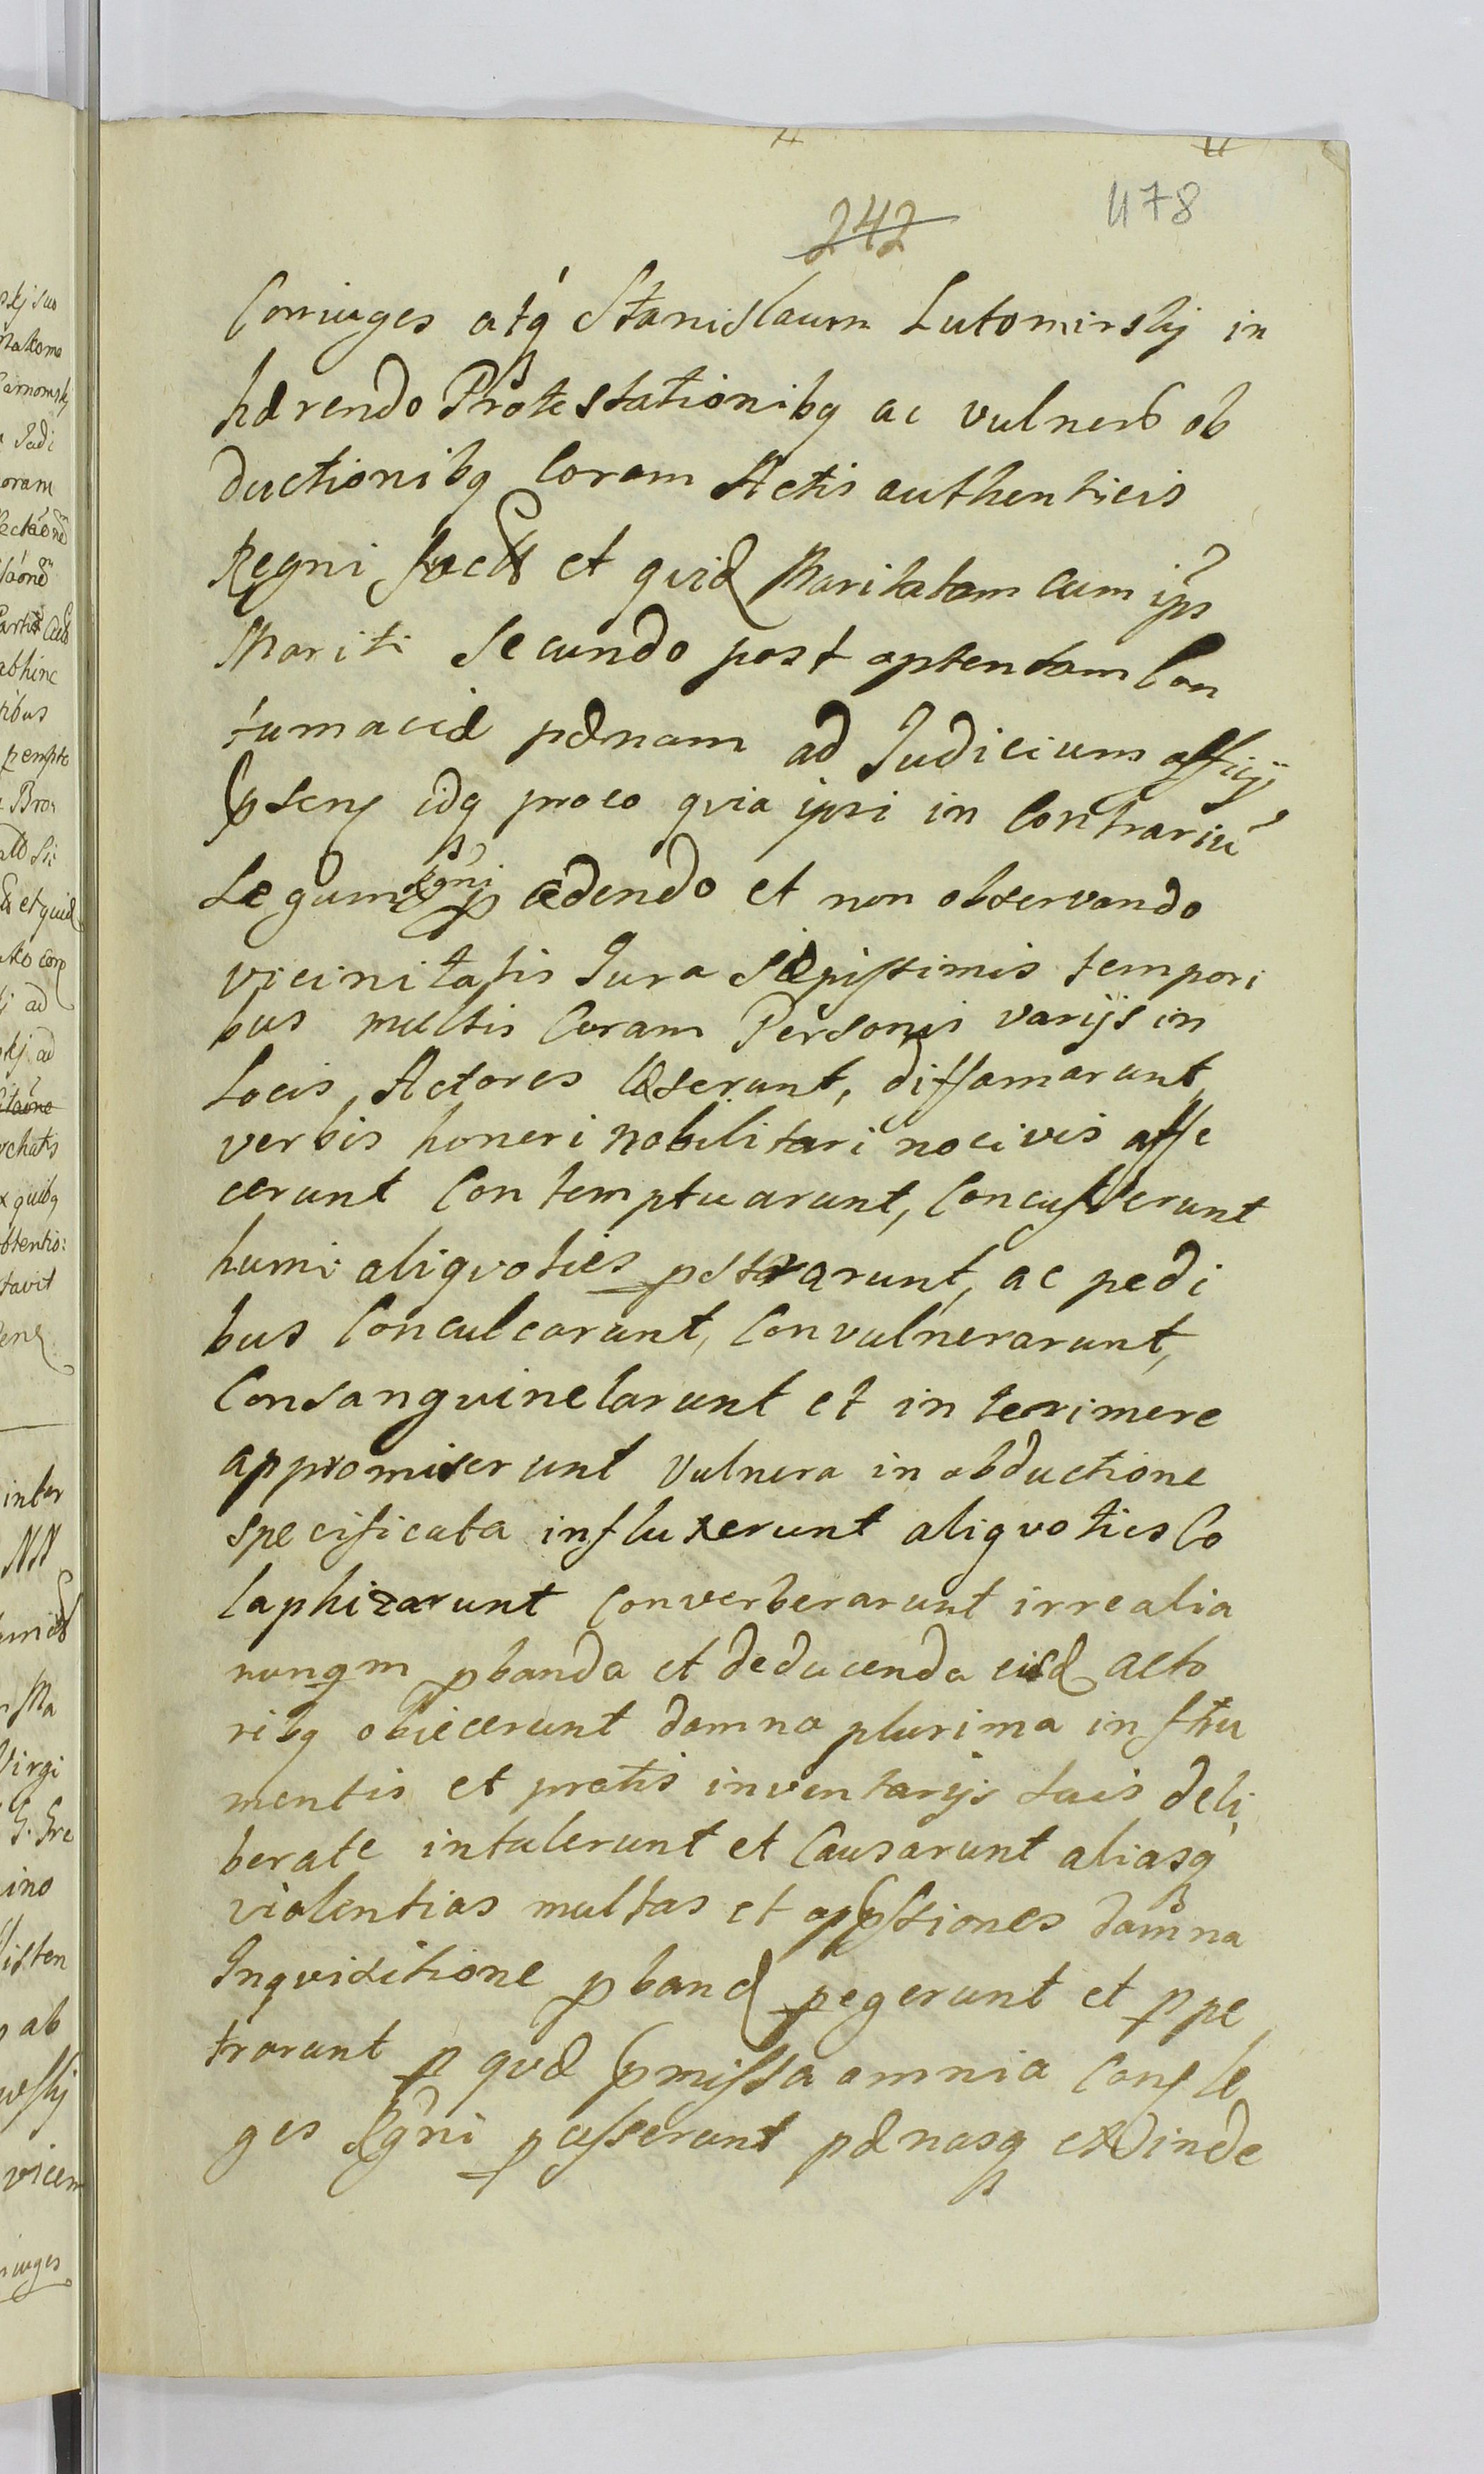 242
478
Coniuges atq Stanislaum Lutomirskj in
hærendo Protestationibq ac vulner ob
ductionibq Coram Actis authenticis
Regni fact et quid Maritatam cum ips
Mariti Secundo post optentam Con
tumaciæ pænam ad Judicium officij
pseng idq proeo qvia ipsi in Contrariũ
Legum Rgni p cædendo et non observando
vicinitatis Jura Sæpissimis tempori
bus multis Coram Personis varijs in
Locis Actores læserunt, diffamarunt,
verbis honeri nobilitari nocivis affe
cerunt Contemptuarunt, Concusserunt
humi aliqvoties pstrarunt, ac pedi
bus Conculcarunt, Convulnerarunt,
Consangvinelarunt et interimere
appromiserunt Vulnera in obductione
specificata influxerunt aliqvoties Co
laphizarunt Converberarunt irrealia
nunqm pbanda et deducenda eisd acto
ribq obiecerunt damna plurima in fru
mentis et pratis inventarijs suis deli
berate intulerunt et Causarunt aliasq
violentias multas et oppssiones damna
Inqvisitione pband pegerunt et ppe
trarunt p qvæ pmissa omnia Cons le
ges Rgni pcusserunt pænasq exinde